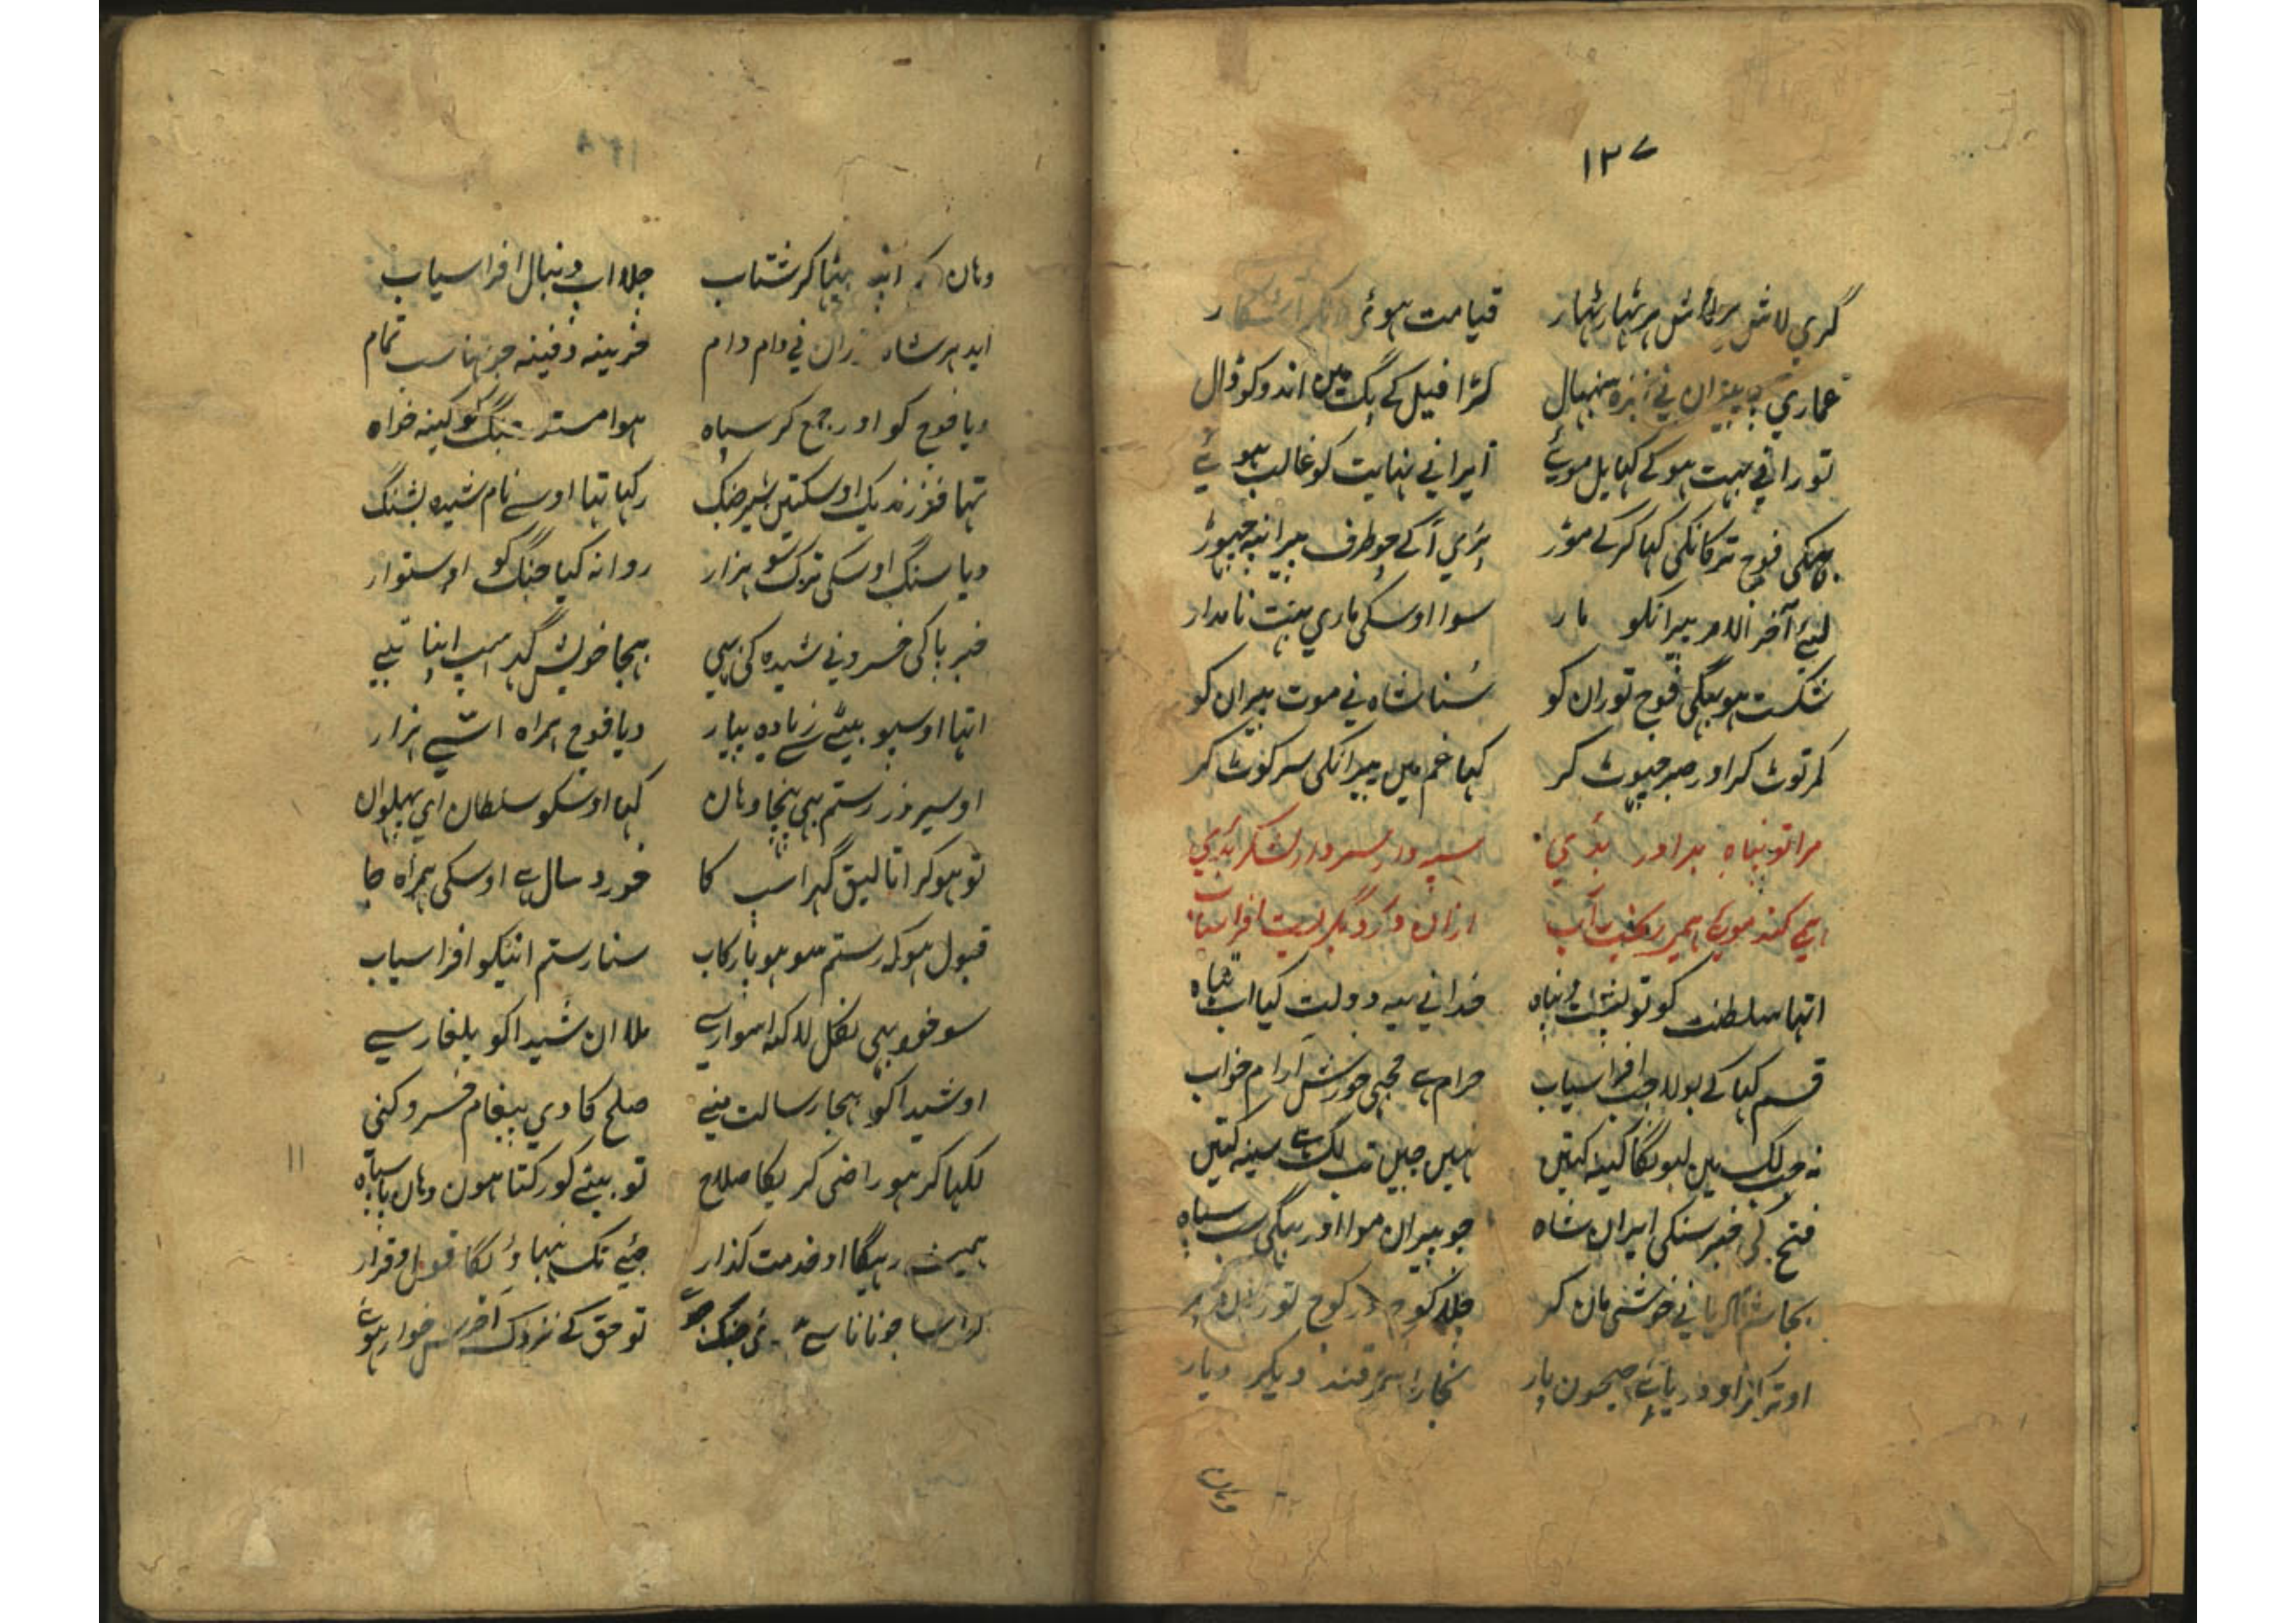 ۱۲۷
گری لاش بر لاش بر ٹہار ٹہار قیامت ہوئی
عماری پیران نی نیزہ سنبہال کڑا فیل کے پگ مین اندو کو ڈال
تورانی بہت ہو کے گہایل موئے ایرانی نہایت کو غالب ہوئے
فوج ترکانکی کہا کر کے موڑ پڑی آ کے چوطرف پیرانپہ چہوڑ
لیئے آخر الامر پیرانکو مار سوا اوسکی ماری بہت نامدار
شکست ہو بہگی فوج توران کو سُنا شاہ نی موت پیران کو
کمر توٹ کر اور صبر چہوٹ کر کہا غم مین پیرانکی سر کوٹ کر
مرا تو پناہ بد اور بدی سپہدار سردار لشکر بدی
ہمی کند موی ہمی ریخت آب ازان درد بگریست افراسیاب
اتہا سلطنت کو تو پشت و پناہ خدانی یہ دولت کیا اب تباہ
قسم کہا کے بولا جب افراسیاب حرام ہے مجہی خورش آرام خواب
نہ جب لگ مین لیونگا کینہ کتین نہین چین تب لگ ہے سینہ کتین
فتح کی خبر سنکی ایران شاہ جو پیران موا اور بہگی سب سپاہ
بجا شادیانی خوشی مان کر چلا کوچ در کوچ توران پر
اوتر آ او دریائے جیحون پار بخارا سمرقند و دیگر دیار
وہان
وہان اپنہ بیٹا کر شتاب چلا اب دنبال افراسیاب
ایدہر شاہ توران نی دام دام خزینہ دفینہ جو تہا سب تمام
دیا فوج کو اور جمع کر سپاہ ہوا مستعد جنگ کو کینہ خواہ
تہا فرزند یک اوسکتین شیر جنگ رکہا تہا اوسے نام شیدہ پشنگ
دیا سنگ اوسکی ترک سو ہزار روانہ کیا جنگ کو اوستوار
خبر پا کی خسرو نی شیدہ کی پہی بہیجا خویش گہراسپ اپنا تبے
اتہا اوسپو بیٹے سے زیادہ پیار دیا فوج ہمراہ اسّی ہزار
اوسی روز رستم بہی پہنچا وہان کہا اوسکو سلطان ای پہلوان
تو ہو کر اتالیق گہراسپ کا خورد سال ہے اوسکی ہمراہ جا
قبول ہو کہ رستم سو ہو پا رکاب سنا رستم انیکو افراسیاب
سو خود بہی نکل لاکہہ اسوار سے ملا ان شیدا کو یلغار سے
او شیدا کو بہیجا رسالت منے صلح کا دی پیغام خسرو کنی
لکہا کر ہو راضی کریگا صلاح تو بیٹے کو رکتا ہون وہان
ہمیشہ رہیگا او خدمت گذار جیئے تک نبہاؤنگا قول و قرار
تو حق کے نزدیک